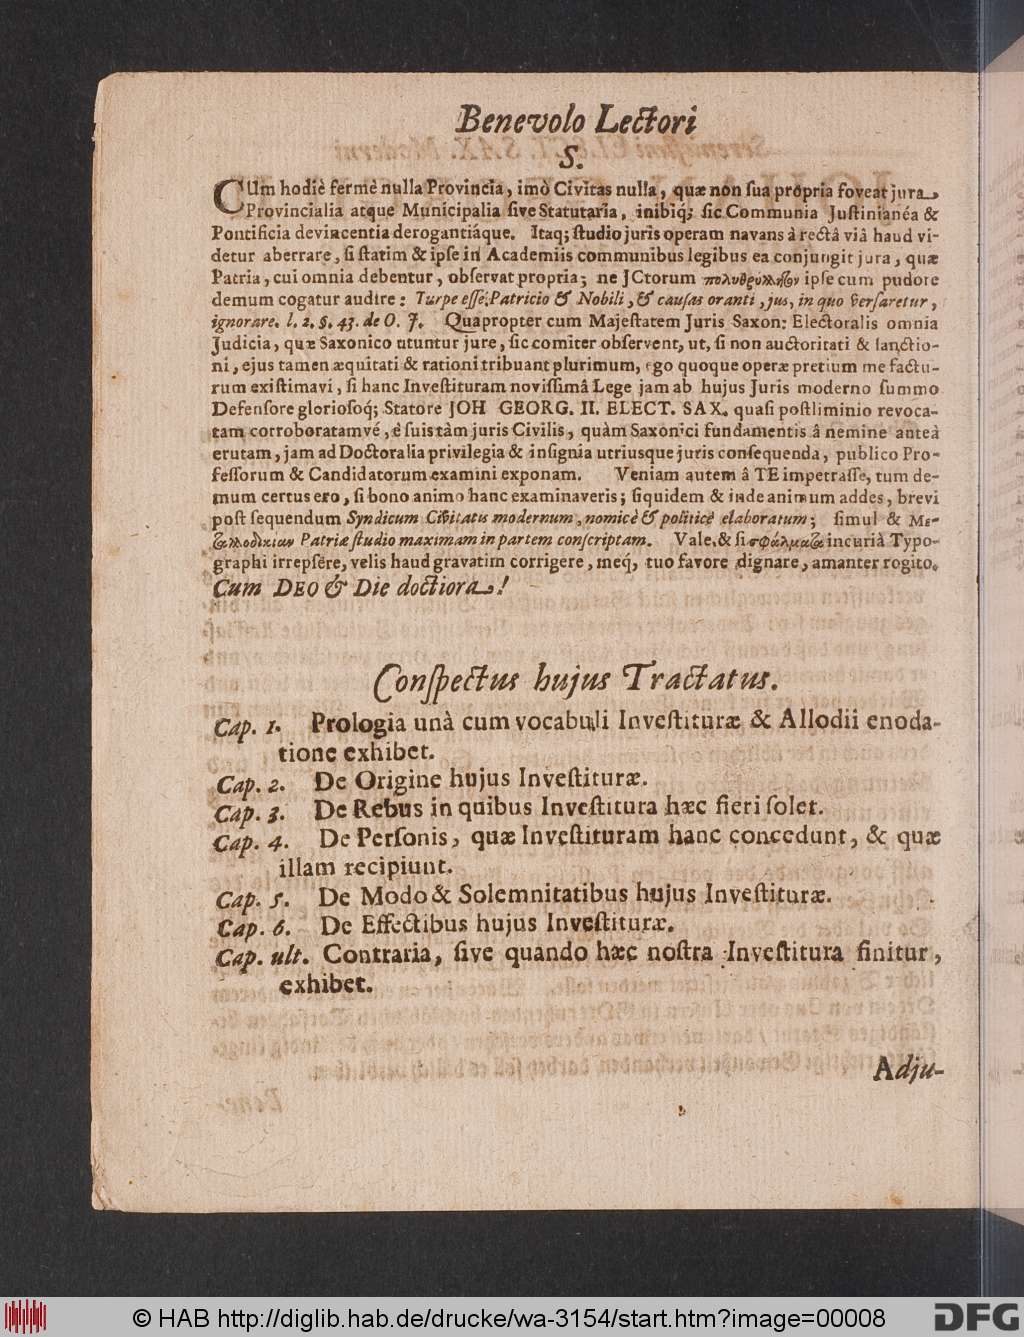 Benevolo Lectori
S.
CUm hodiè fermè nulla Provincia, imò Civitas nulla, quæ non ſua propria foveat jura
Provincialia atque Municipalia ſive Statutaria, inibiq; ſic Communia Juſtinianéa &
Pontificia devincentia derogantiáque. Itaq; ſtudio juris operam navans à rectâ viâ haud vi-
detur aberrare, ſi ſtatim & ipſe in Academiis communibus legibus ea conjungit jura, quæ
Patria, cui omnia debentur, obſervat propria; ne JCtorum πολυθρύλλητον ipſe cum pudore
demum cogatur audire: Turpe eſſe, Patricio & Nobili, & cauſas oranti, jus, in quo verſaretur,
ignorare. l. 2. §. 43. de O. J. Quapropter cum Majeſtatem Juris Saxon: Electoralis omnia
Judicia, quæ Saxonico utuntur jure, ſic comiter obſervent, ut, ſi non auctoritati & ſanctio-
ni, ejus tamen æquitati & rationi tribuant plurimum, ego quoque operæ pretium me factu-
rum exiſtimavi, ſi hanc Inveſtituram noviſſimâ Lege jam ab hujus Juris moderno ſummo
Defenſore glorioſoq; Statore JOH GEORG. II. ELECT. SAX. quaſi poſtliminio revoca-
tam corroboratamvé, è ſuis tàm juris Civilis, quàm Saxonici fundamentis â nemine anteà
erutam, jam ad Doctoralia privilegia & inſignia utriusque juris conſequenda, publico Pro-
feſſorum & Candidatorum examini exponam. Veniam autem â TE impetraſſe, tum de-
mum certus ero, ſi bono animo hanc examinaveris; ſiquidem & inde animum addes, brevi
poſt ſequendum Syndicum Civitatis modernum, nomicè & politicè elaboratum; ſimul &
Patriæ ſtudio maximam in partem conſcriptam. Vale, & ſi σφάλματα incuriâ Typo-
graphi irrepſêre, velis haud gravatim corrigere, meq; tuo favore dignare, amanter rogito.
Cum DEO & Die doctiora!
Conſpectus hujus Tractatus.
Cap. 1. Prologia unà cum vocabuli Inveſtituræ & Allodii enoda-
tione exhibet.
Cap. 2. De Origine hujus Inveſtituræ.
Cap. 3. De Rebus in quibus Inveſtitura hæc fieri ſolet.
Cap. 4. De Perſonis, quæ Inveſtituram hanc concedunt, & quæ
illam recipiunt.
Cap. 5. De Modo & Solemnitatibus hujus Inveſtituræ.
Cap. 6. De Effectibus hujus Inveſtituræ.
Cap. ult. Contraria, ſive quando hæc noſtra Inveſtitura finitur,
exhibet.
Adju-
© HAB http://diglib.hab.de/drucke/wa-3154/start.htm?image=00008
DFG